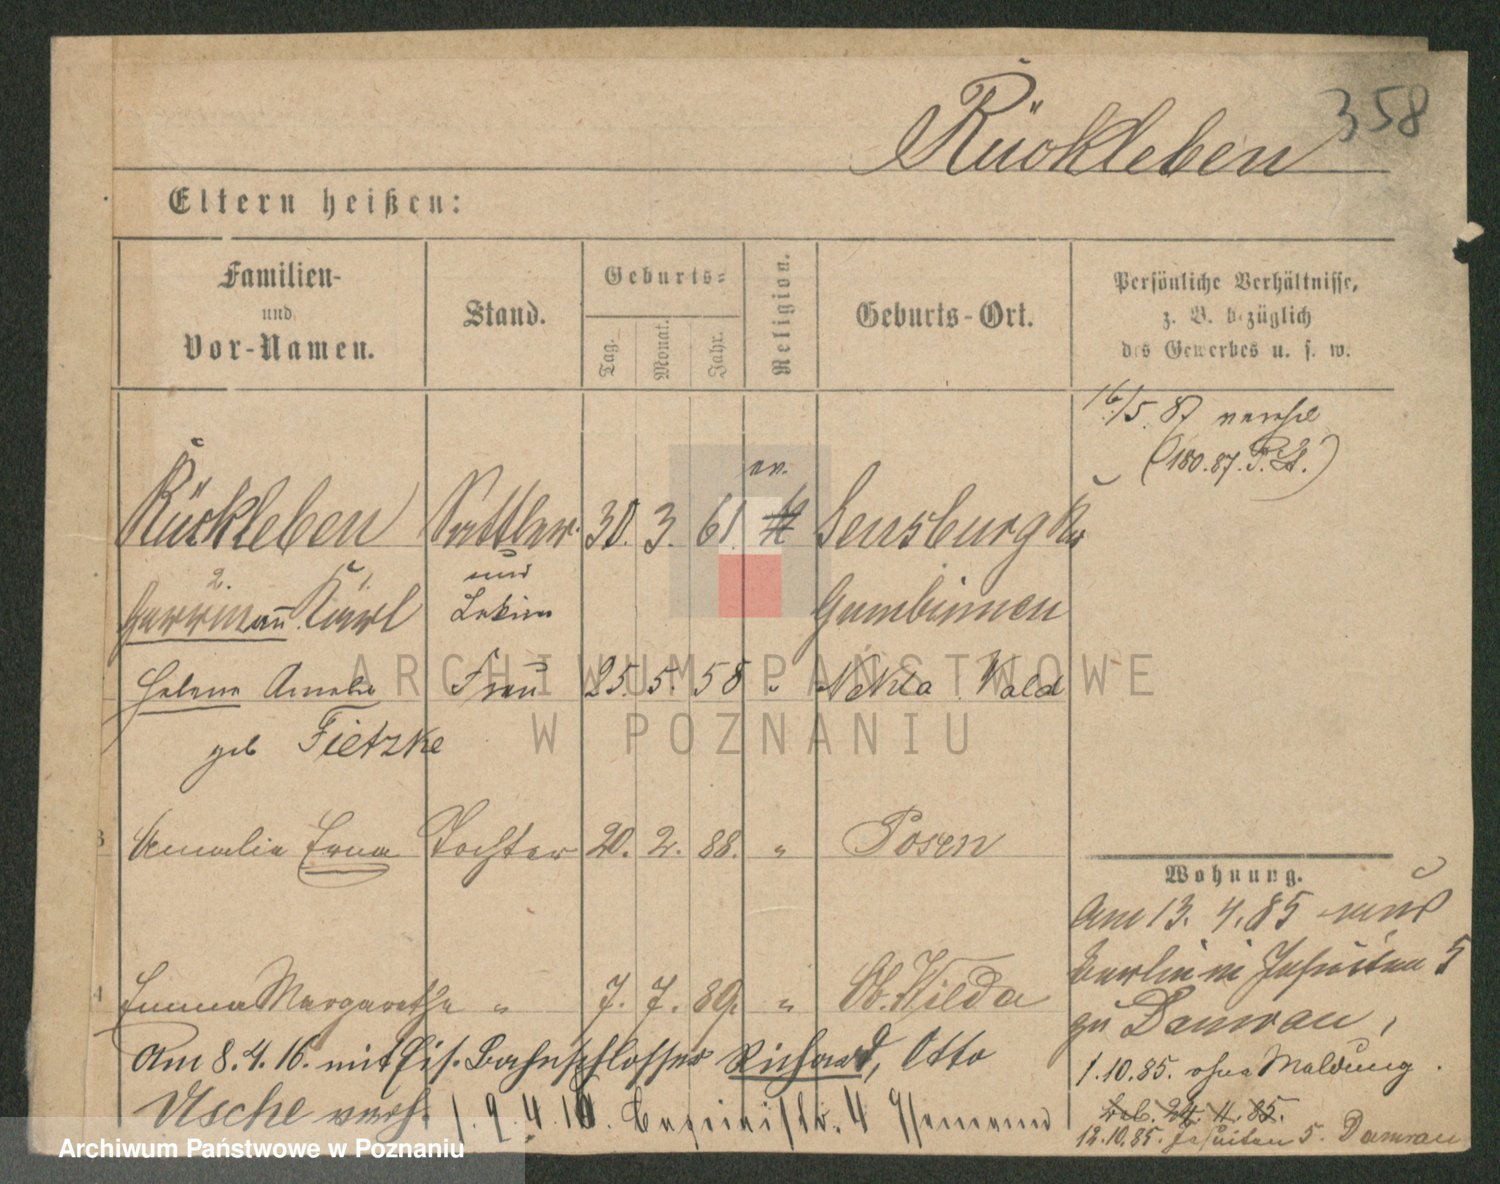 358
Rückleben
Eltern heißen:
Familien-
und
Vor-Namen.
Stand.
Geburts-
Tag.
Monat.
Jahr.
Religion.
Geburts-Ort.
Persönliche Verhältnisse,
z. B. bezüglich
des Gewerbes u. s. w.
16/5. 87
(180.87. P.)
ev.
Rückleben Sattler 30. 3. 61. Sensburg
und
2. 1.
Herrmann Karl Gumbinnen
Helene Amalie Frau 25. 5. 58 " Nekla Wald
geb Fietzke
3 Amalie Erna Tochter 20. 2. 88. " Posen
Wohnung.
Am 13. 4. 85 aus
Berlin in Jesuiten 5
zu Damrau,
4 Emma Margarethe " 7. 7. 89. " Ob. Wilda
Am 8. 4. 16. mit Eis. Bahnschlosser Richard, Otto
1.10.85. ohne Meldung.
Usche verh.
24. 4. 85.
12.10.85. Jesuiten 5. Damrau
ARCHIWUM PAŃSTWOWE
W POZNANIU
Archiwum Państwowe w Poznaniu